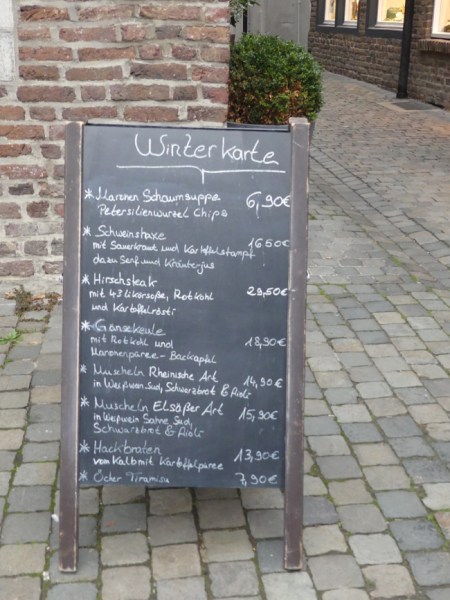 Winterkarte
* Maronen Schaumsuppe 6,90€
Petersilienwurzel Chips
* Schweinshaxe
mit Sauerkraut und Kartoffelstampf 16,50€
dazu Senf und Kräuterjus
* Hirschsteak
mit 43 Likörsoße, Rotkohl 29,50€
und Kartoffelrösti
* Gänsekeule
mit Rotkohl und 18,90€
Maronenpüree - Backapfel
* Muscheln Rheinische Art
in Weißwein Sud, Schwarzbrot & Aioli 14,90€
* Muscheln Elsäßer Art
in Weißwein Sahne Sud, 15,90€
Schwarzbrot & Aioli
* Hackbraten
vom Kalb mit Kartoffelpüree 13,90€
* Öcher Tiramisu 7,90€